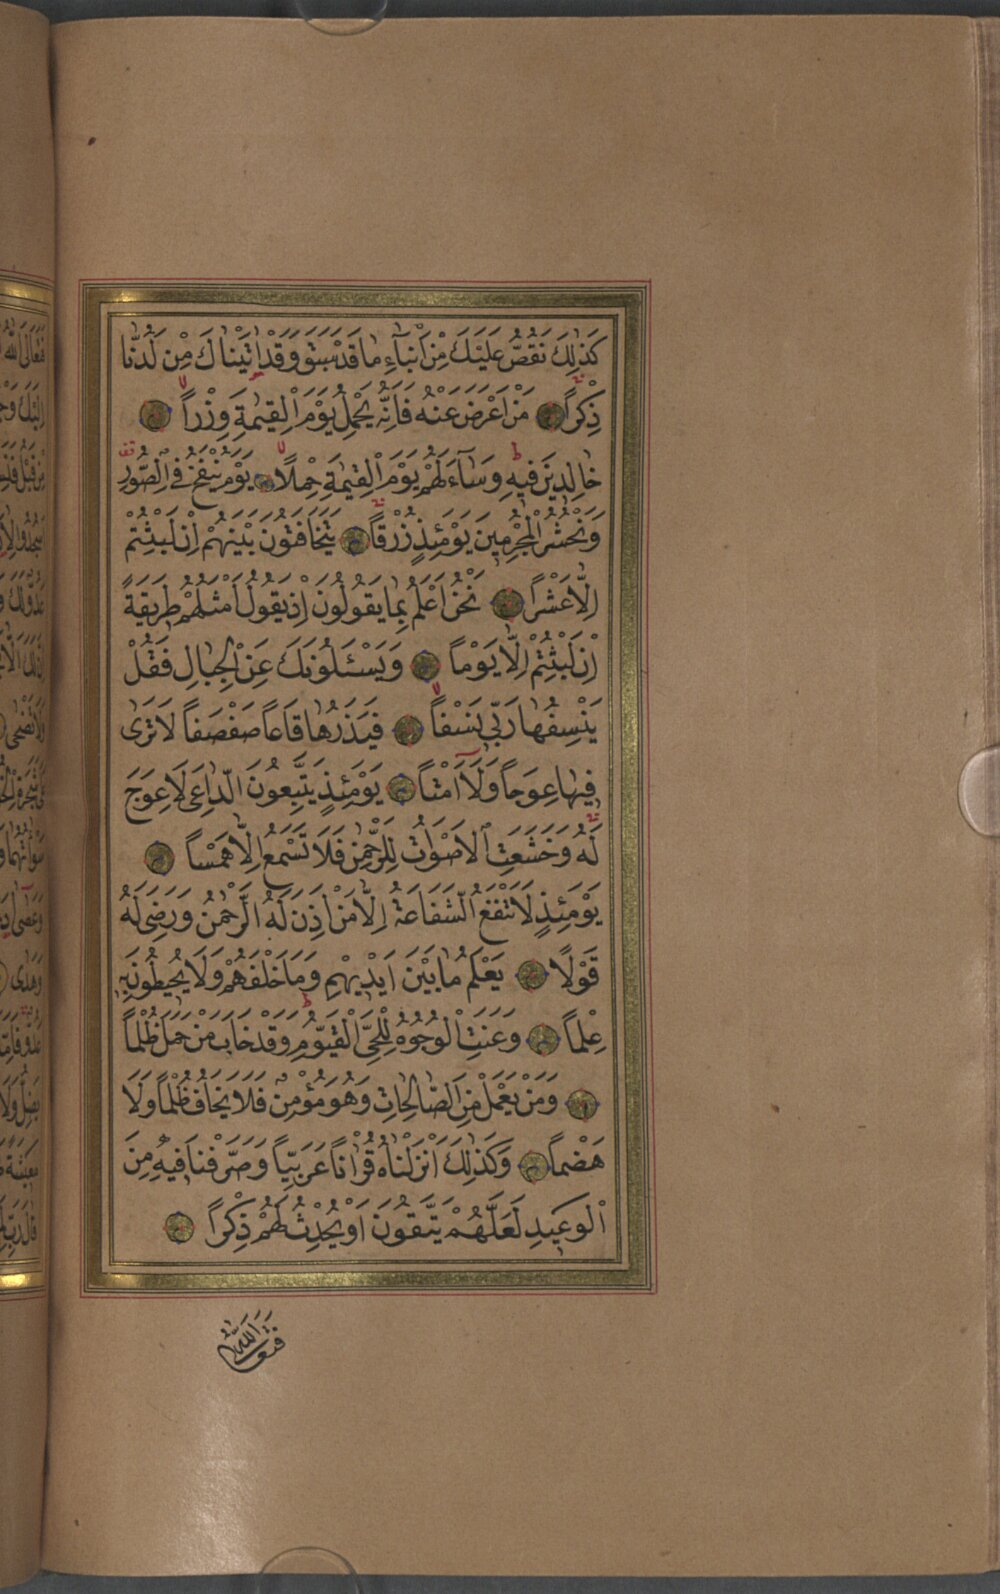 كَذٰلِكَ نَقُصُّ عَلَيْكَ مِنْ اَنْبَٓاءِ مَا قَدْ سَبَقَ وَقَدْ اٰتَيْنَاكَ مِنْ لَدُنَّا
ذِكْراً مَنْ اَعْرَضَ عَنْهُ فَاِنَّهُ يَحْمِلُ يَوْمَ الْقِيٰمَةِ وِزْراً
خَالِدِينَ فِيهِ وَسَٓاءَ لَهُمْ يَوْمَ الْقِيٰمَةِ حِمْلاً يَوْمَ يُنْفَخُ فِي الصُّورِ
وَنَحْشُرُ الْمُجْرِمِينَ يَوْمَئِذٍ زُرْقاً يَتَخَافَتُونَ بَيْنَهُمْ اِنْ لَبِثْتُمْ
اِلَّا عَشْراً نَحْنُ اَعْلَمُ بِمَا يَقُولُونَ اِذْ يَقُولُ اَمْثَلُهُمْ طَرِيقَةً
اِنْ لَبِثْتُمْ اِلَّا يَوْماً وَيَسْـَٔلُونَكَ عَنِ الْجِبَالِ فَقُلْ
يَنْسِفُهَا رَبِّي نَسْفاً فَيَذَرُهَا قَاعاً صَفْصَفاً لَا تَرٰى
فِيهَا عِوَجاً وَلَٓا اَمْتاً يَوْمَئِذٍ يَتَّبِعُونَ الدَّاعِيَ لَا عِوَجَ
لَهُ وَخَشَعَتِ الْاَصْوَاتُ لِلرَّحْمٰنِ فَلَا تَسْمَعُ اِلَّا هَمْساً
يَوْمَئِذٍ لَا تَنْفَعُ الشَّفَاعَةُ اِلَّا مَنْ اَذِنَ لَهُ الرَّحْمٰنُ وَرَضِيَ لَهُ
قَوْلاً يَعْلَمُ مَا بَيْنَ اَيْدِيهِمْ وَمَا خَلْفَهُمْ وَلَا يُحِيطُونَ بِهِ
عِلْماً وَعَنَتِ الْوُجُوهُ لِلْحَيِّ الْقَيُّومِ وَقَدْ خَابَ مَنْ حَمَلَ ظُلْماً
وَمَنْ يَعْمَلْ مِنَ الصَّالِحَاتِ وَهُوَ مُؤْمِنٌ فَلَا يَخَافُ ظُلْماً وَلَا
هَضْماً وَكَذٰلِكَ اَنْزَلْنَاهُ قُرْاٰناً عَرَبِيّاً وَصَرَّفْنَا فِيهِ مِنَ
الْوَعِيدِ لَعَلَّهُمْ يَتَّقُونَ اَوْ يُحْدِثُ لَهُمْ ذِكْراً
فَتَعَالَى اللّٰهُ